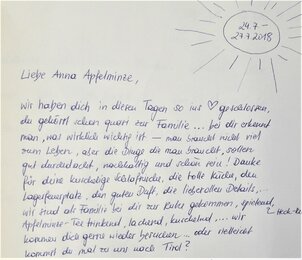 24.7 –
27.7.2018
Liebe Anna Apfelminze,
wir haben dich in diesen Tagen so ins ♡ geschlossen,
du gehörst schon quasi zur Familie... bei dir erkennt
man, was wirklich wichtig ist – man braucht nicht viel
zum Leben, aber die Dinge die man braucht, sollen
gut durchdacht, nachhaltig und schön sein! Danke
für deine kuschelige Schlafnische, die tolle Küche, den
Lagerfeuerplatz, den guten Duft, die liebevollen Details,...
wir sind als Familie bei dir zur Ruhe gekommen, spielend,
Apfelminze-Tee trinkend, lachend, kuschelnd,... wir
kommen dich gerne wieder besuchen... oder vielleicht
kommst du mal zu uns nach Tirol?